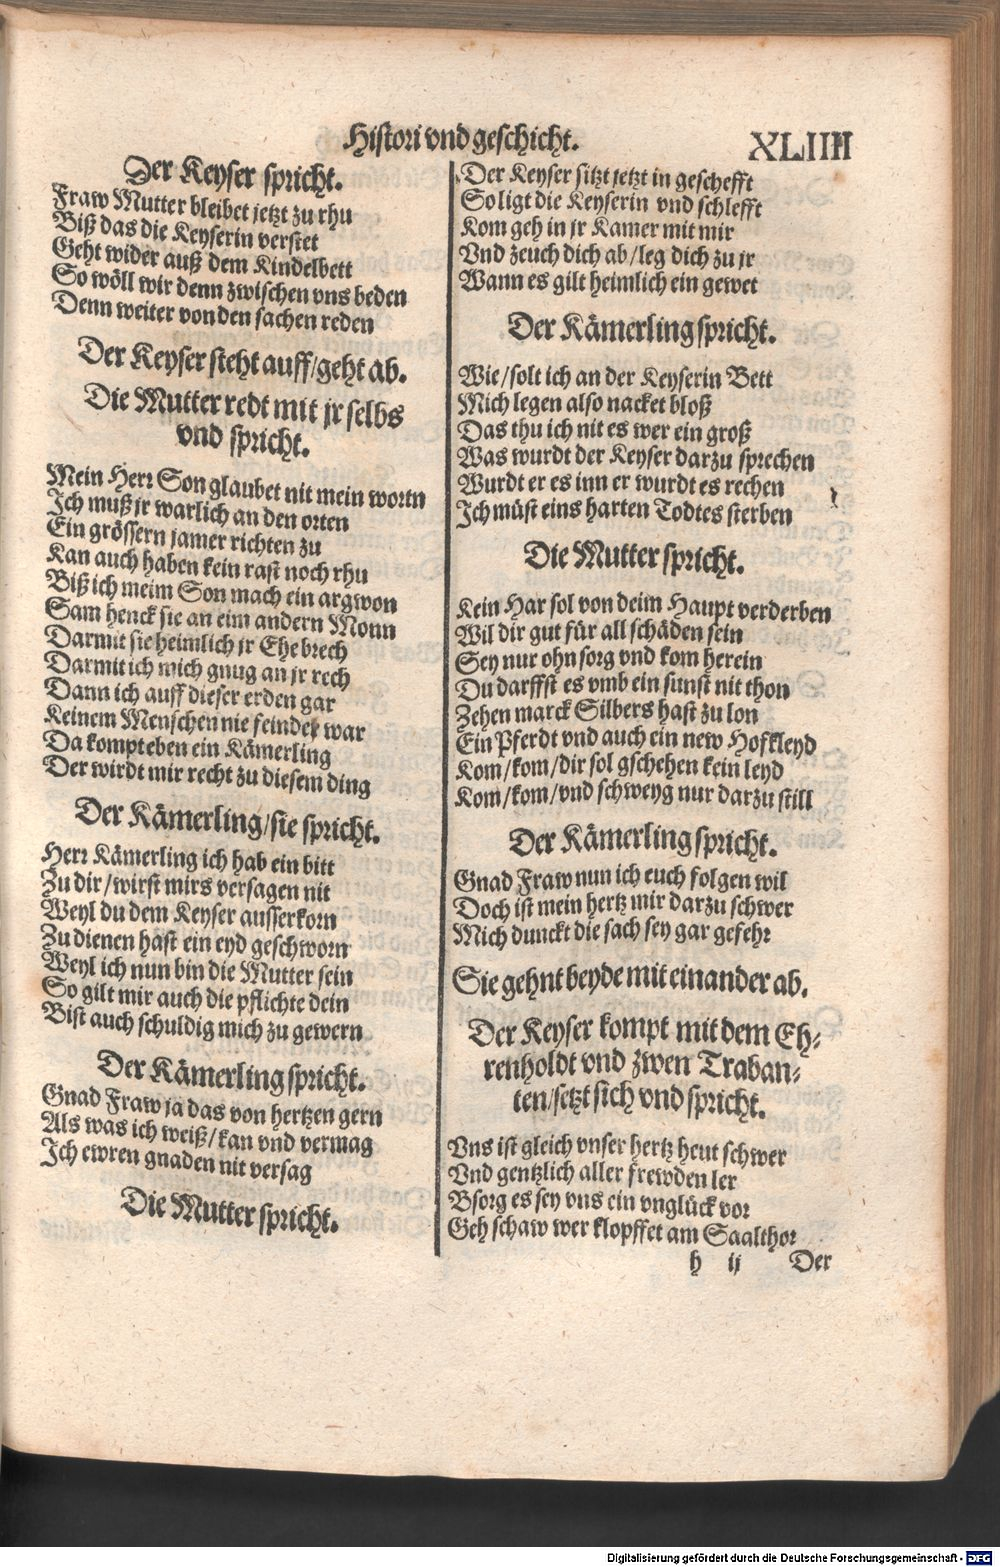 Histori vnd geschicht.
XLIIII
Der Keyser spricht.
Fraw Mutter bleibet jetzt zu rhu
Biß das die Keyserin verstet
Geht wider auß dem Kindelbett
So wöll wir denn zwischen vns beden
Denn weiter von den sachen reden
Der Keyser steht auff/geht ab.
Die Mutter redt mit jr selbs
vnd spricht.
Mein Herr Son glaubet nit mein wortn
Ich muß jr warlich an den orten
Ein grössern jamer richten zu
Kan auch haben kein rast noch rhu
Biß ich meim Son mach ein argwon
Sam henck sie an eim andern Monn
Darmit sie heimlich jr Ehe brech
Darmit ich mich gnug an jr rech
Dann ich auff dieser erden gar
Keinem Menschen nie feinder war
Da kompt eben ein Kämerling
Der wirdt mir recht zu diesem ding
Der Kämerling/sie spricht.
Herr Kämerling ich hab ein bitt
Zu dir/wirst mirs versagen nit
Weyl du dem Keyser ausserkorn
Zu dienen hast ein eyd geschworn
Weyl ich nun bin die Mutter sein
So gilt mir auch die pflichte dein
Bist auch schuldig mich zu gewern
Der Kämerling spricht.
Gnad Fraw ja das von hertzen gern
Als was ich weiß/kan vnd vermag
Ich ewren gnaden nit versag
Die Mutter spricht.
Der Keyser sitzt jetzt in geschefft
So ligt die Keyserin vnd schlefft
Kom geh in jr Kamer mit mir
Vnd zeuch dich ab/leg dich zu jr
Wann es gilt heimlich ein gewet
Der Kämerling spricht.
Wie/solt ich an der Keyserin Bett
Mich legen also nacket bloß
Das thu ich nit es wer ein groß
Was wurdt der Keyser darzu sprechen
Wurdt er es inn er wurdt es rechen
Ich müst eins harten Todtes sterben
Die Mutter spricht.
Kein Har sol von deim Haupt verderben
Wil dir gut für all schäden sein
Sey nur ohn sorg vnd kom herein
Du darffst es vmb ein sunst nit thon
Zehen marck Silbers hast zu lon
Ein Pferdt vnd auch ein new Hofkleyd
Kom/kom/dir sol gschehen kein leyd
Kom/kom/vnd schweyg nur darzu still
Der Kämerling spricht.
Gnad Fraw nun ich euch folgen wil
Doch ist mein hertz mir darzu schwer
Mich dunckt die sach sey gar gefehr
Sie gehnt beyde mit einander ab.
Der Keyser kompt mit dem Eh-
renholdt vnd zwen Traban-
ten/setzt sich vnd spricht.
Vns ist gleich vnser hertz heut schwer
Vnd gentzlich aller frewden ler
Bsorg es sey vns ein vnglück vor
Geh schaw wer klopffet am Saalthor
h ij Der
Digitalisierung gefördert durch die Deutsche Forschungsgemeinschaft - DFG